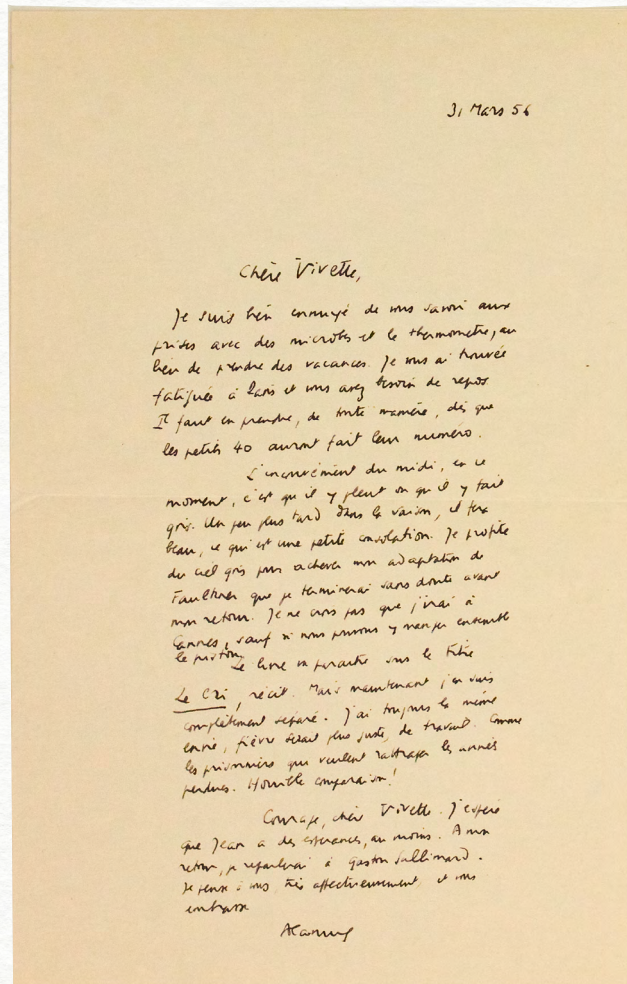 31 Mars 56
Chère Vivette,
Je suis bien ennuyé de vous savoir aux
prises avec des microbes et le thermomètre, au
lieu de prendre des vacances. Je vous ai trouvée
fatiguée à Paris et vous avez besoin de repos
Il faut en prendre, de toute manière, dès que
les petits 40 auront fait leur numéro.
L'inconvénient du midi, en ce
moment, c'est qu'il y pleut ou qu'il y fait
gris. Un peu plus tard dans la saison, il fera
beau, ce qui est une petite consolation. Je profite
du ciel gris pour achever mon adaptation de
Faulkner que je terminerai sans doute avant
mon retour. Je ne crois pas que j'irai à
Cannes, sauf si nous pouvons y manger ensemble
le piston.
Le livre va paraître sous le titre
Le Cri, récit. Mais maintenant j'en suis
complètement séparé. J'ai toujours la même
envie, fièvre serait plus juste, de travail. Comme
les prisonniers qui veulent rattraper les années
perdues. Horrible comparaison!
Courage, chère Vivette. J'espère
que Jean a des espérances, au moins. A mon
retour, je reparlerai à Gaston Gallimard.
Je pense à vous très affectueusement, et vous
embrasse
ACamus